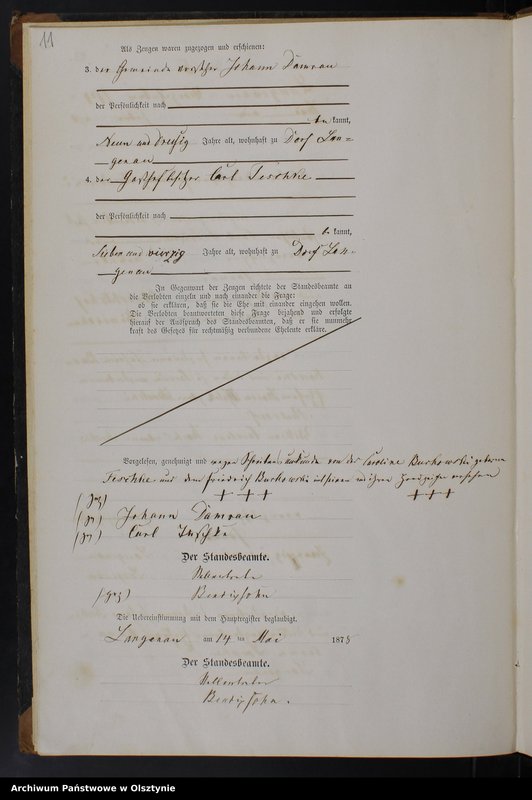 11
Als Zeugen waren zugezogen und erschienen:
3. der Gemeinde Vorsteher Johann Damrau
der Persönlichkeit nach
be kannt,
Neun und dreißig Jahre alt, wohnhaft zu Dorf Lan=
genau
4. der Gasthofbesitzer Carl Teschke
der Persönlichkeit nach
be kannt,
Sieben und vierzig Jahre alt, wohnhaft zu Dorf Lan-
genau
In Gegenwart der Zeugen richtete der Standesbeamte an
die Verlobten einzeln und nach einander die Frage:
ob sie erklären, daß sie die Ehe mit einander eingehen wollen.
Die Verlobten beantworteten diese Frage bejahend und erfolgte
hierauf der Ausspruch des Standesbeamten, daß er sie nunmehr
kraft des Gesetzes für rechtmäßig verbundene Eheleute erkläre.
Vorgelesen, genehmigt und wegen Schreibensunkunde von der Caroline Burkowski geborene
Teschke und dem Friedrich Burkowski mit ihren Handzeichen versehen
+ + + + + +
(gez)
(gez) Johann Damrau
(gez) Carl Teschke
Der Standesbeamte.
(gez)
Die Uebereinstimmung mit dem Hauptregister beglaubigt.
Langenau am 14 ten Mai 1875
Der Standesbeamte.
Archiwum Państwowe w Olsztynie